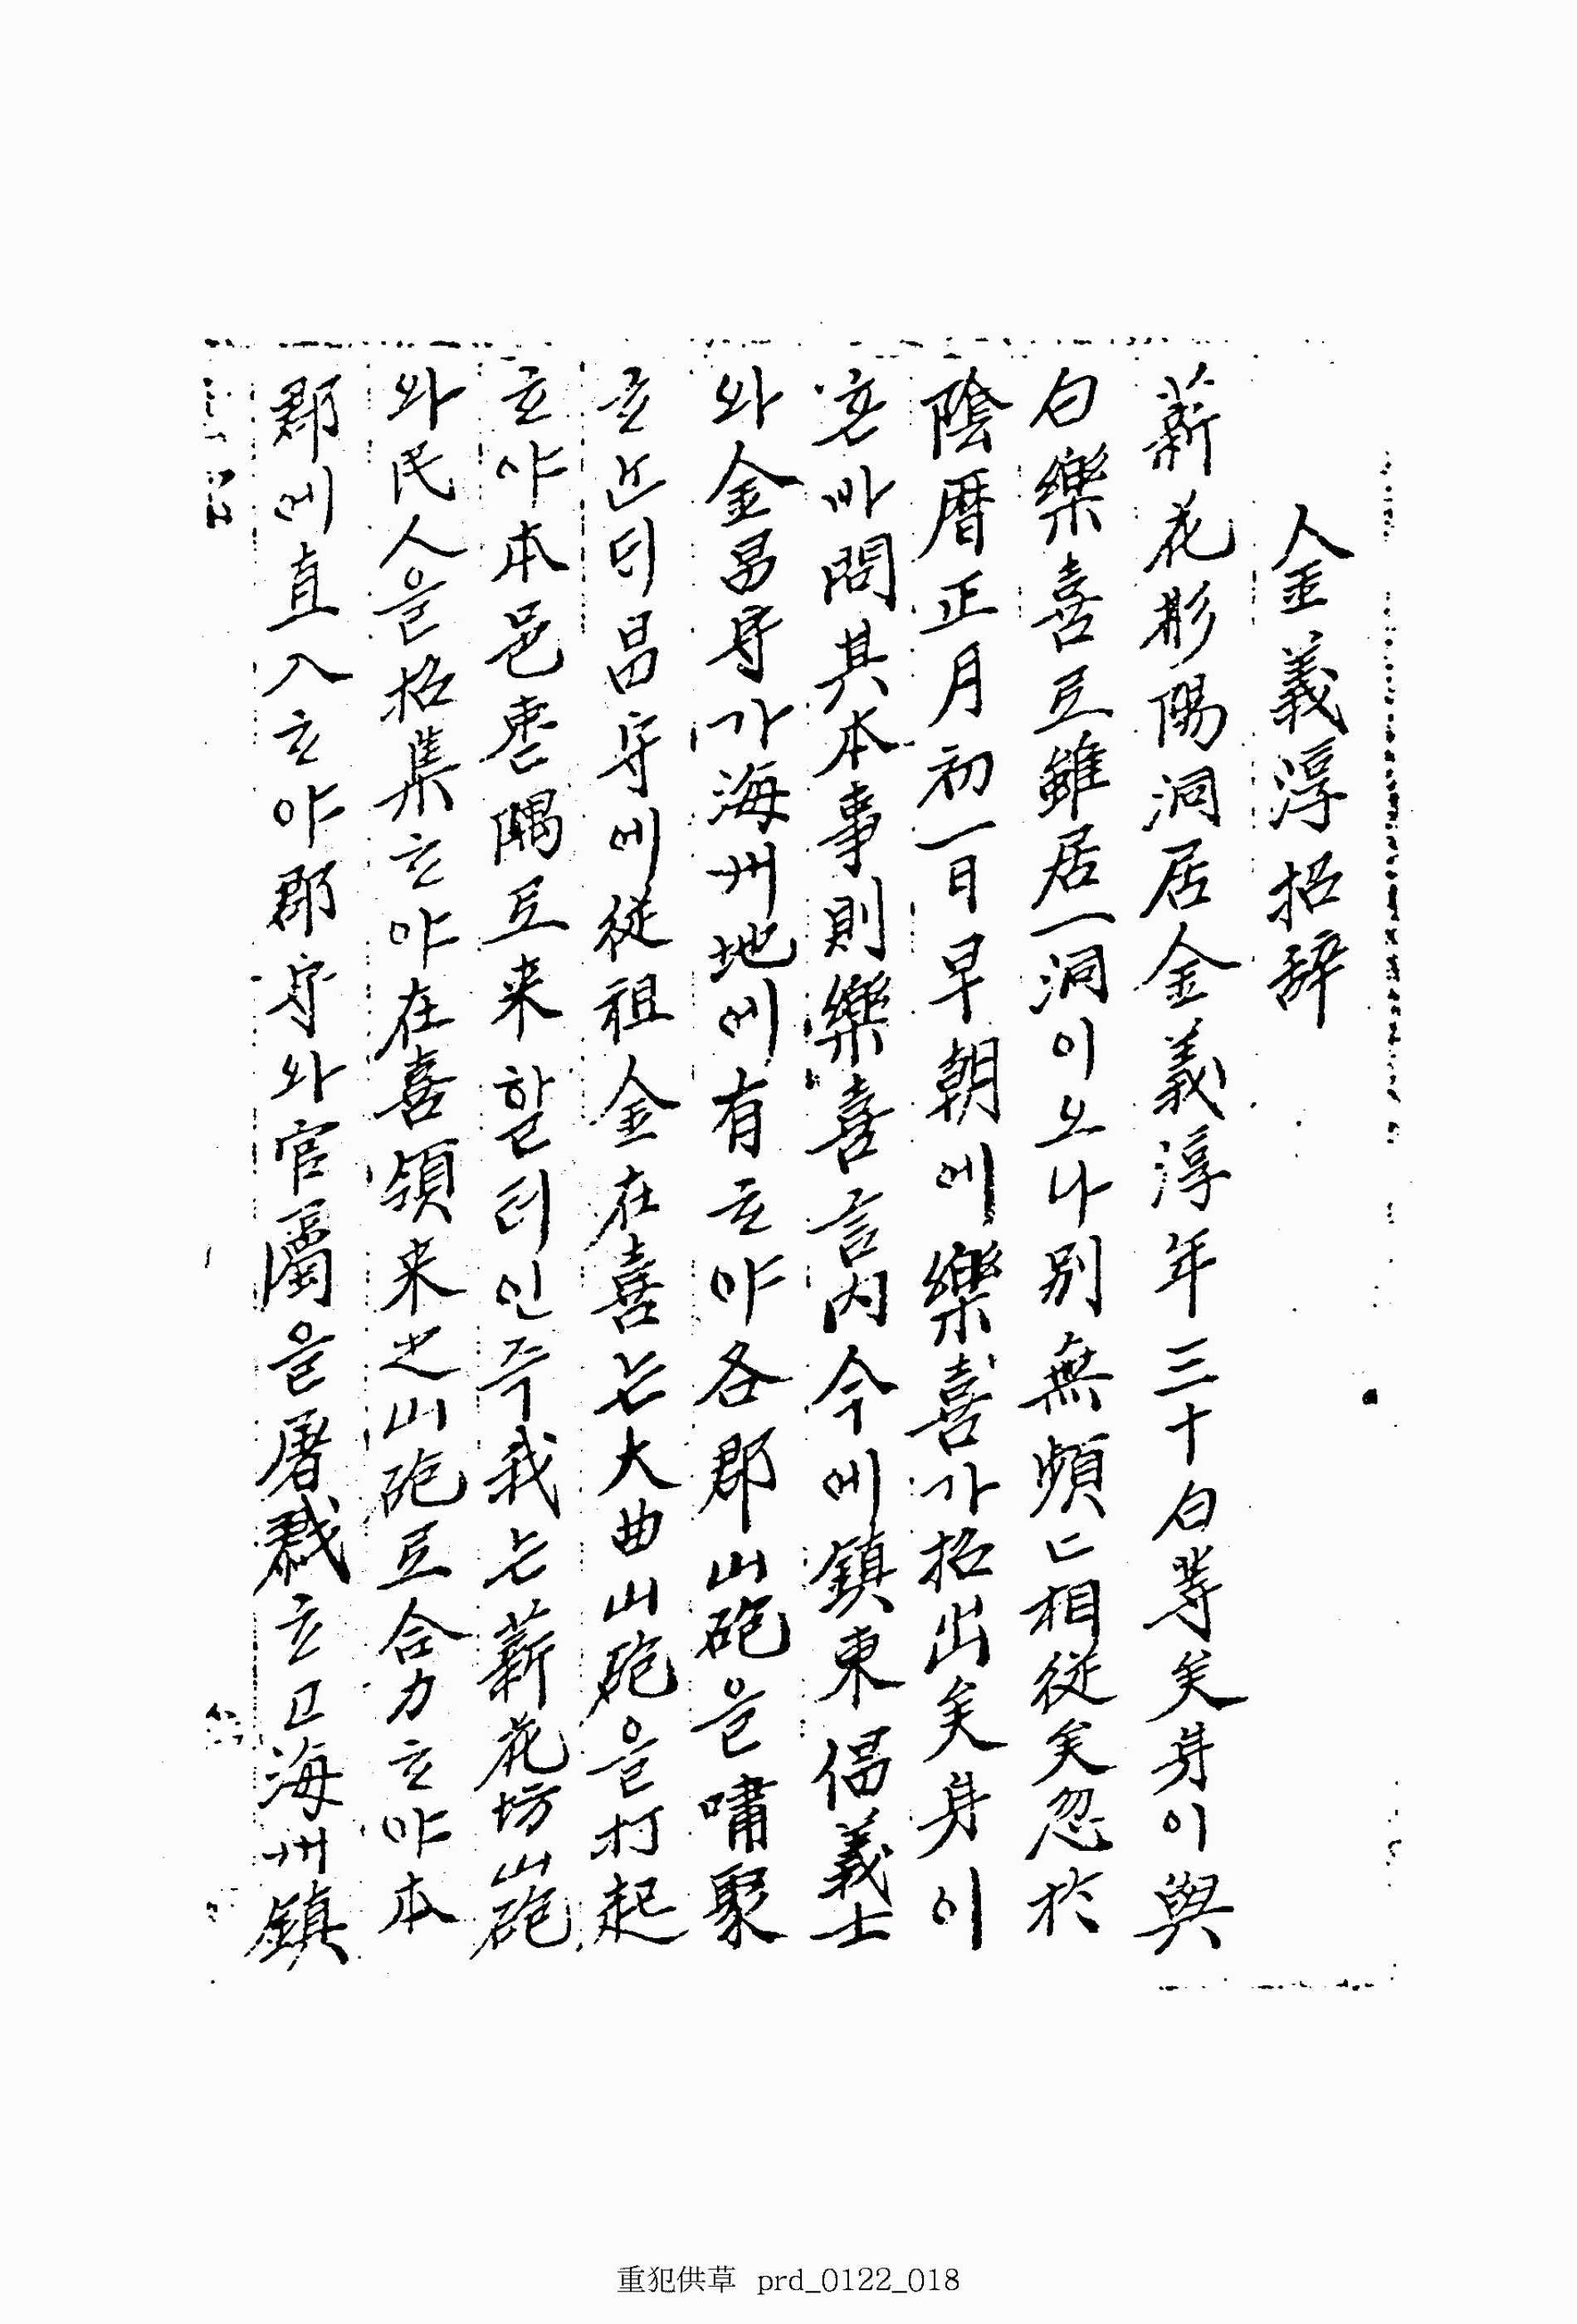 金義淳招辞
薪花彡陽洞居金義淳年三十白等矣身이與
白樂喜로雖居一洞이오나別無頻〻相從矣忽於
陰曆正月初一日早朝에樂喜가招出矣身이
온바問其本事則樂喜言內今에鎭東倡義士
와金昌守가海州地에有하야各郡山砲을嘯聚
하난디昌守에從祖金在喜난大曲山砲을打起
하야本邑棗隅로来할터인즉我난薪花坊山砲
와民人을招集하야在喜領来之山砲로合力하야本
郡에直入하야郡守와官屬을屠戮하고海州鎭
重犯供草 prd_0122_018